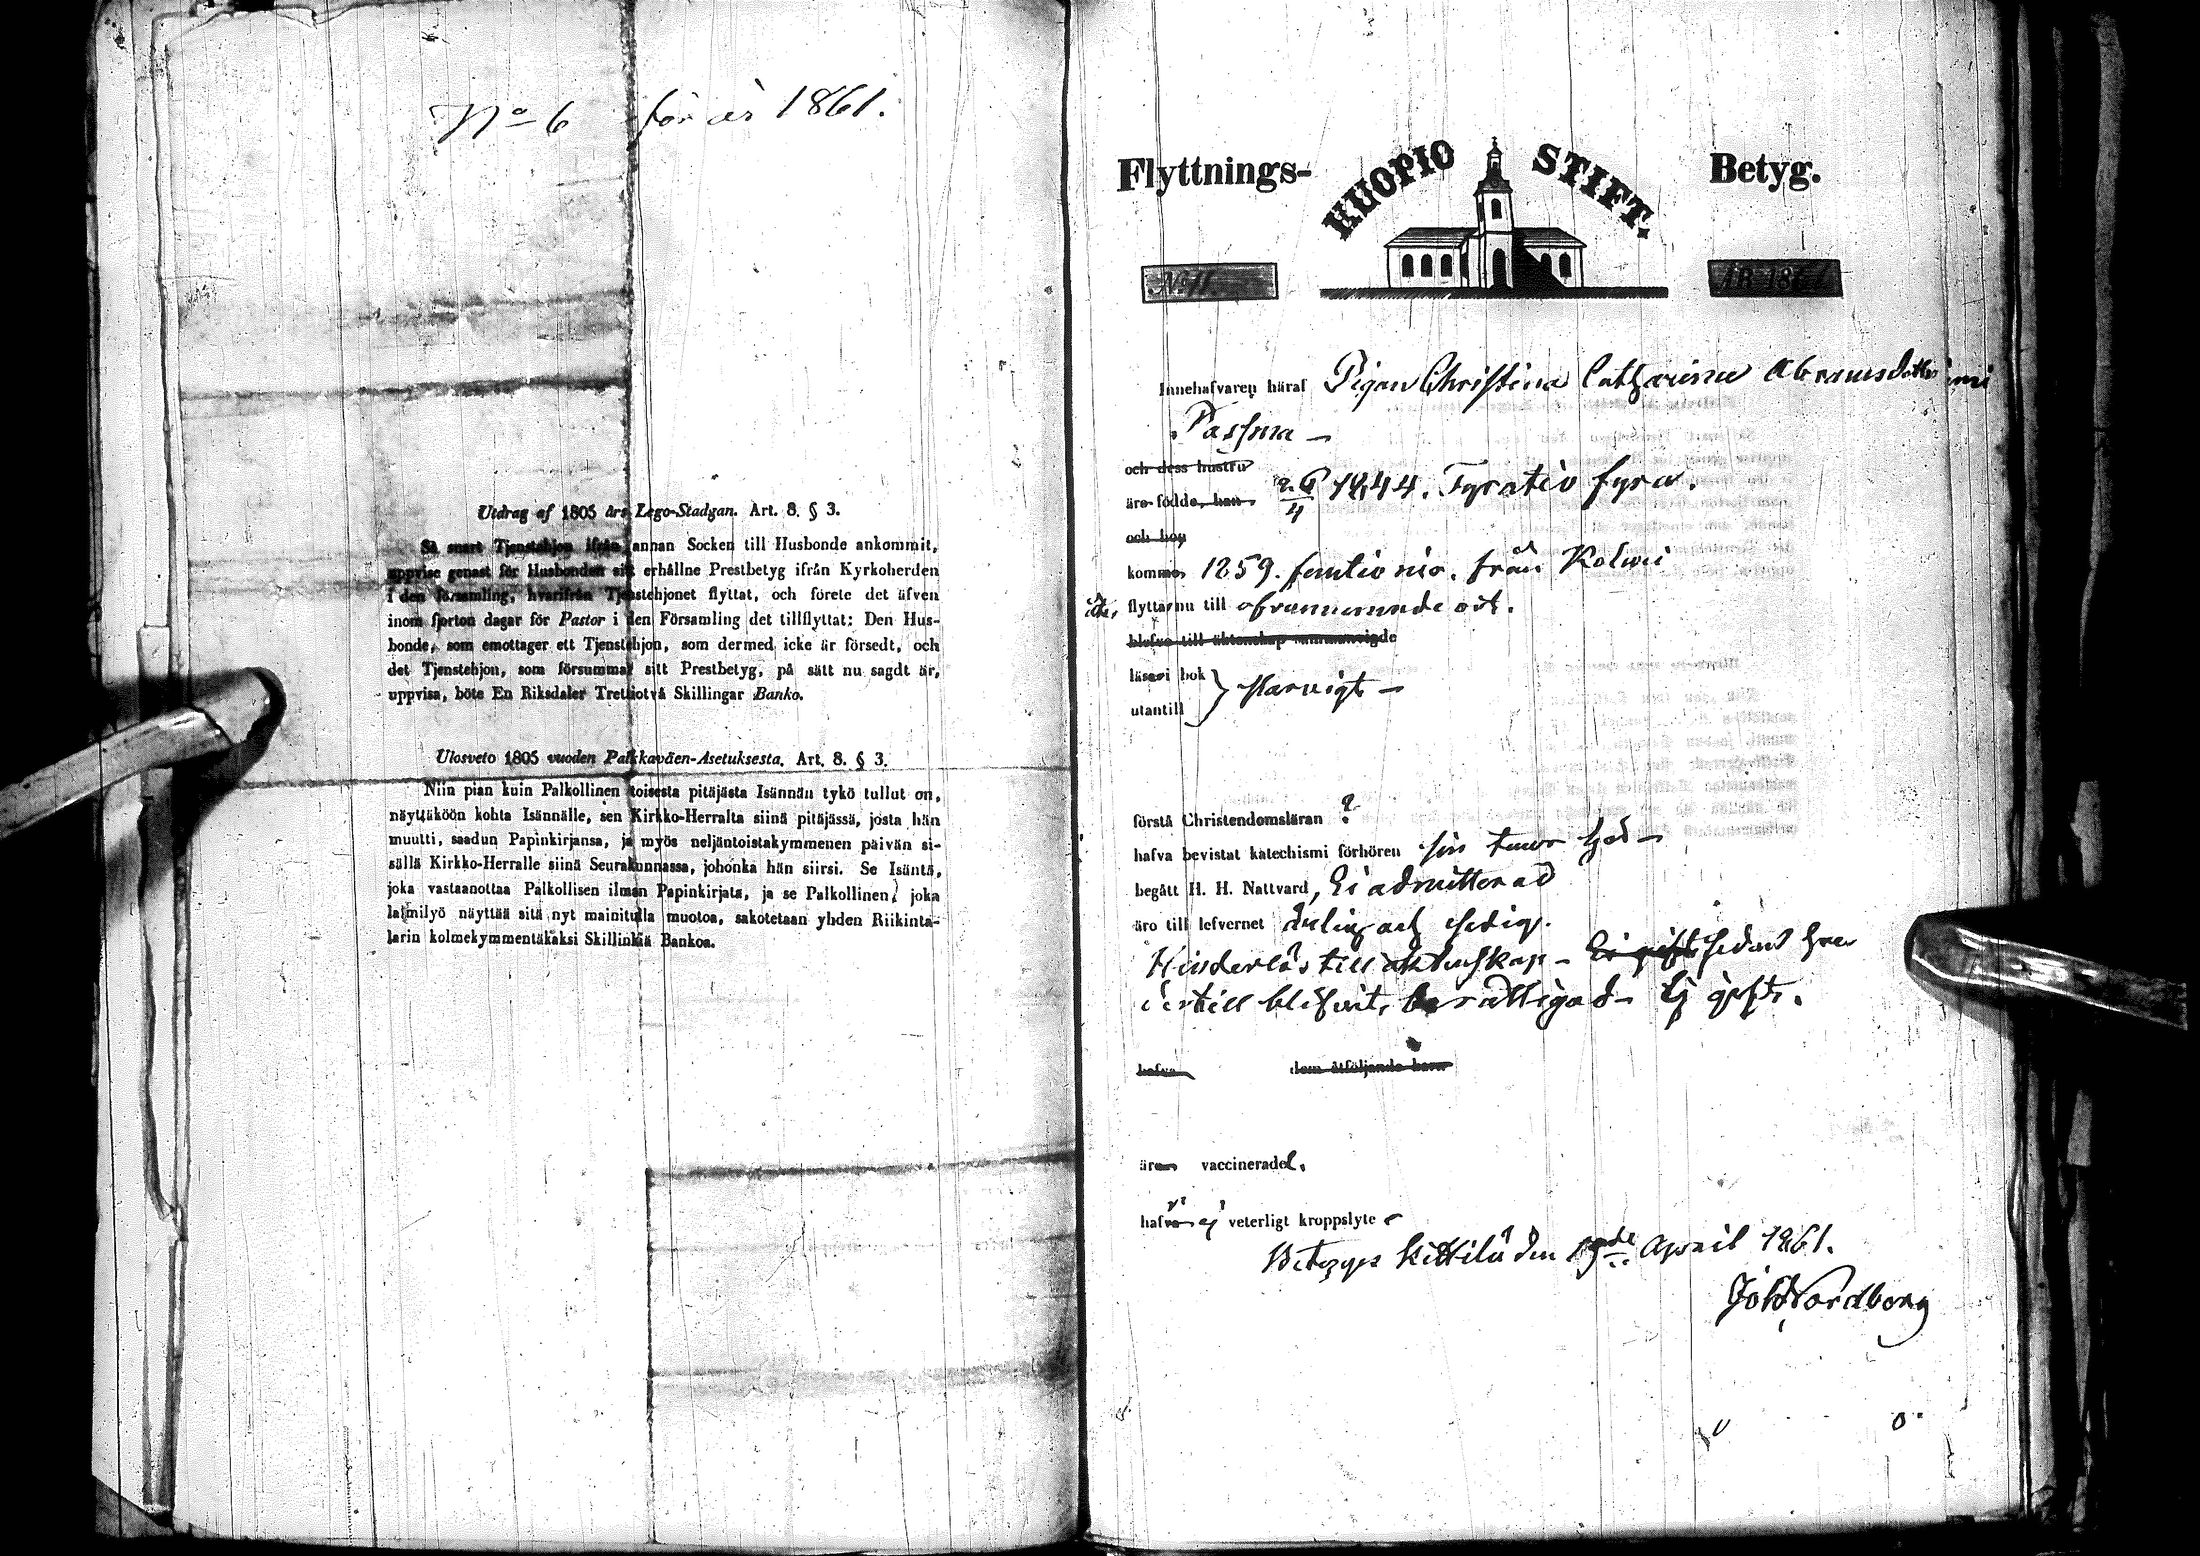 No 6 för år 1861.
Utdrag af 1805 års Lego-Stadgan. Art. 8. § 3.
Så snart Tjenstehjon ifrån annan Socken till Husbonde ankommit,
uppvise genast för Husbonden sitt erhållne Prestbetyg ifrån Kyrkoherden
i den församling, hvarifrån Tjenstehjonet flyttat, och förete det äfven
inom fjorton dagar för Pastor i den Församling det tillflyttat: Den Hus-
bonde, som emottager ett Tjenstehjon, som dermed icke är försedt, och
det Tjenstehjon, som försummar sitt Prestbetyg, på sätt nu sagdt är,
uppvisa, böte En Riksdaler Trettiotvå Skillingar Banko.
Ulosveto 1805 vuoden Palkkaväen-Asetuksesta. Art. 8. § 3.
Niin pian kuin Palkollinen toisesta pitäjästä Isännän tykö tullut on,
näyttäköön kohta Isännälle, sen Kirkko-Herralta siinä pitäjässä, josta hän
muutti, saadun Papinkirjansa, ja myös neljäntoistakymmenen päivän si-
sällä Kirkko-Herralle siinä Seurakunnassa, johonka hän siirsi. Se Isäntä,
joka vastaanottaa Palkollisen ilman Papinkirjata, ja se Palkollinen, joka
laimilyö näyttää sitä nyt mainitulla muotoa, sakotetaan yhden Riikinta-
larin kolmekymmentäkaksi Skillinkiä Bankoa.
Flyttnings- HUOPIO STIFT. Betyg.
No 11 ÅR 1861
Innehafvaren häraf Pigan Christina Catharina Abramsdotter
Passma –
och dess hustru
äro födde, han 26/4 1844. Fyratio fyra.
och hon
komme, 1859. femtio nio. från Kolari
flyttar nu till ofvannämnde ort.
blefvo till äktenskap sammanvigde
läser i bok
utantill } Försvarligt –
förstå Christendomsläran ?
hafva bevistat katechismi förhören sin tour hos –
begått H. H. Nattvard, Ei admitterad
äro till lefvernet ärlig och sedig.
Hinderlös till äktenskap – Ei gift sedan hon
dertill blifvit berättigad – Ej gifts.
hafva dem åtföljande barn
äro vaccinerad.
hafva ej veterligt kroppslyte
Betygas Kittilä den 19de April 1861.
Joh Nordborg